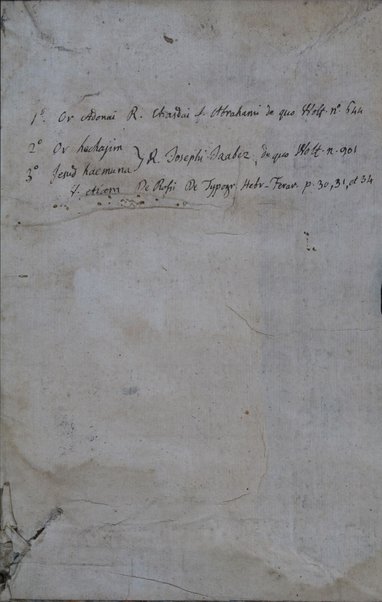 1º Or Adonai R. Chasdai f. Abrahami de quo Wolf. nº 644
2º Or hachajim
3º Jesod haemuna } R. Josephi Jaabez, de quo Wolf. n. 901
V. etiam De Rossi De Typogr. Hebr-Ferrar. p. 30, 31, et 34